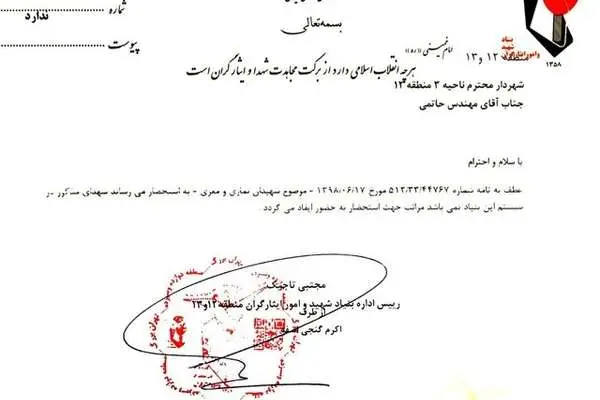 شماره
ندارد
بسمه‌تعالی
پیوست
بنیاد
شهید
و امور ایثارگران
۱۳۵۸
منطقه ۱۲ و ۱۳
امام خمینی (ره)
هر چه انقلاب اسلامی دارد از برکت مجاهدت شهدا و ایثارگران است
شهردار محترم ناحیه ۳ منطقه ۱۳
جناب آقای مهندس حاتمی
با سلام و احترام
عطف به نامه شماره ۵۱۲/۳۳/۴۴۷۶۷ مورخ ۱۳۹۸/۰۶/۱۷ - موضوع شهیدان نماری و معزی - به استحضار می رساند شهدای مذکور در
سیستم این بنیاد نمی باشد مراتب جهت استحضار به حضور ایفاد می گردد.
مجتبی تاجیک
رییس اداره بنیاد شهید و امور ایثارگران منطقه ۱۲و۱۳
از طرف
اکرم گنجی